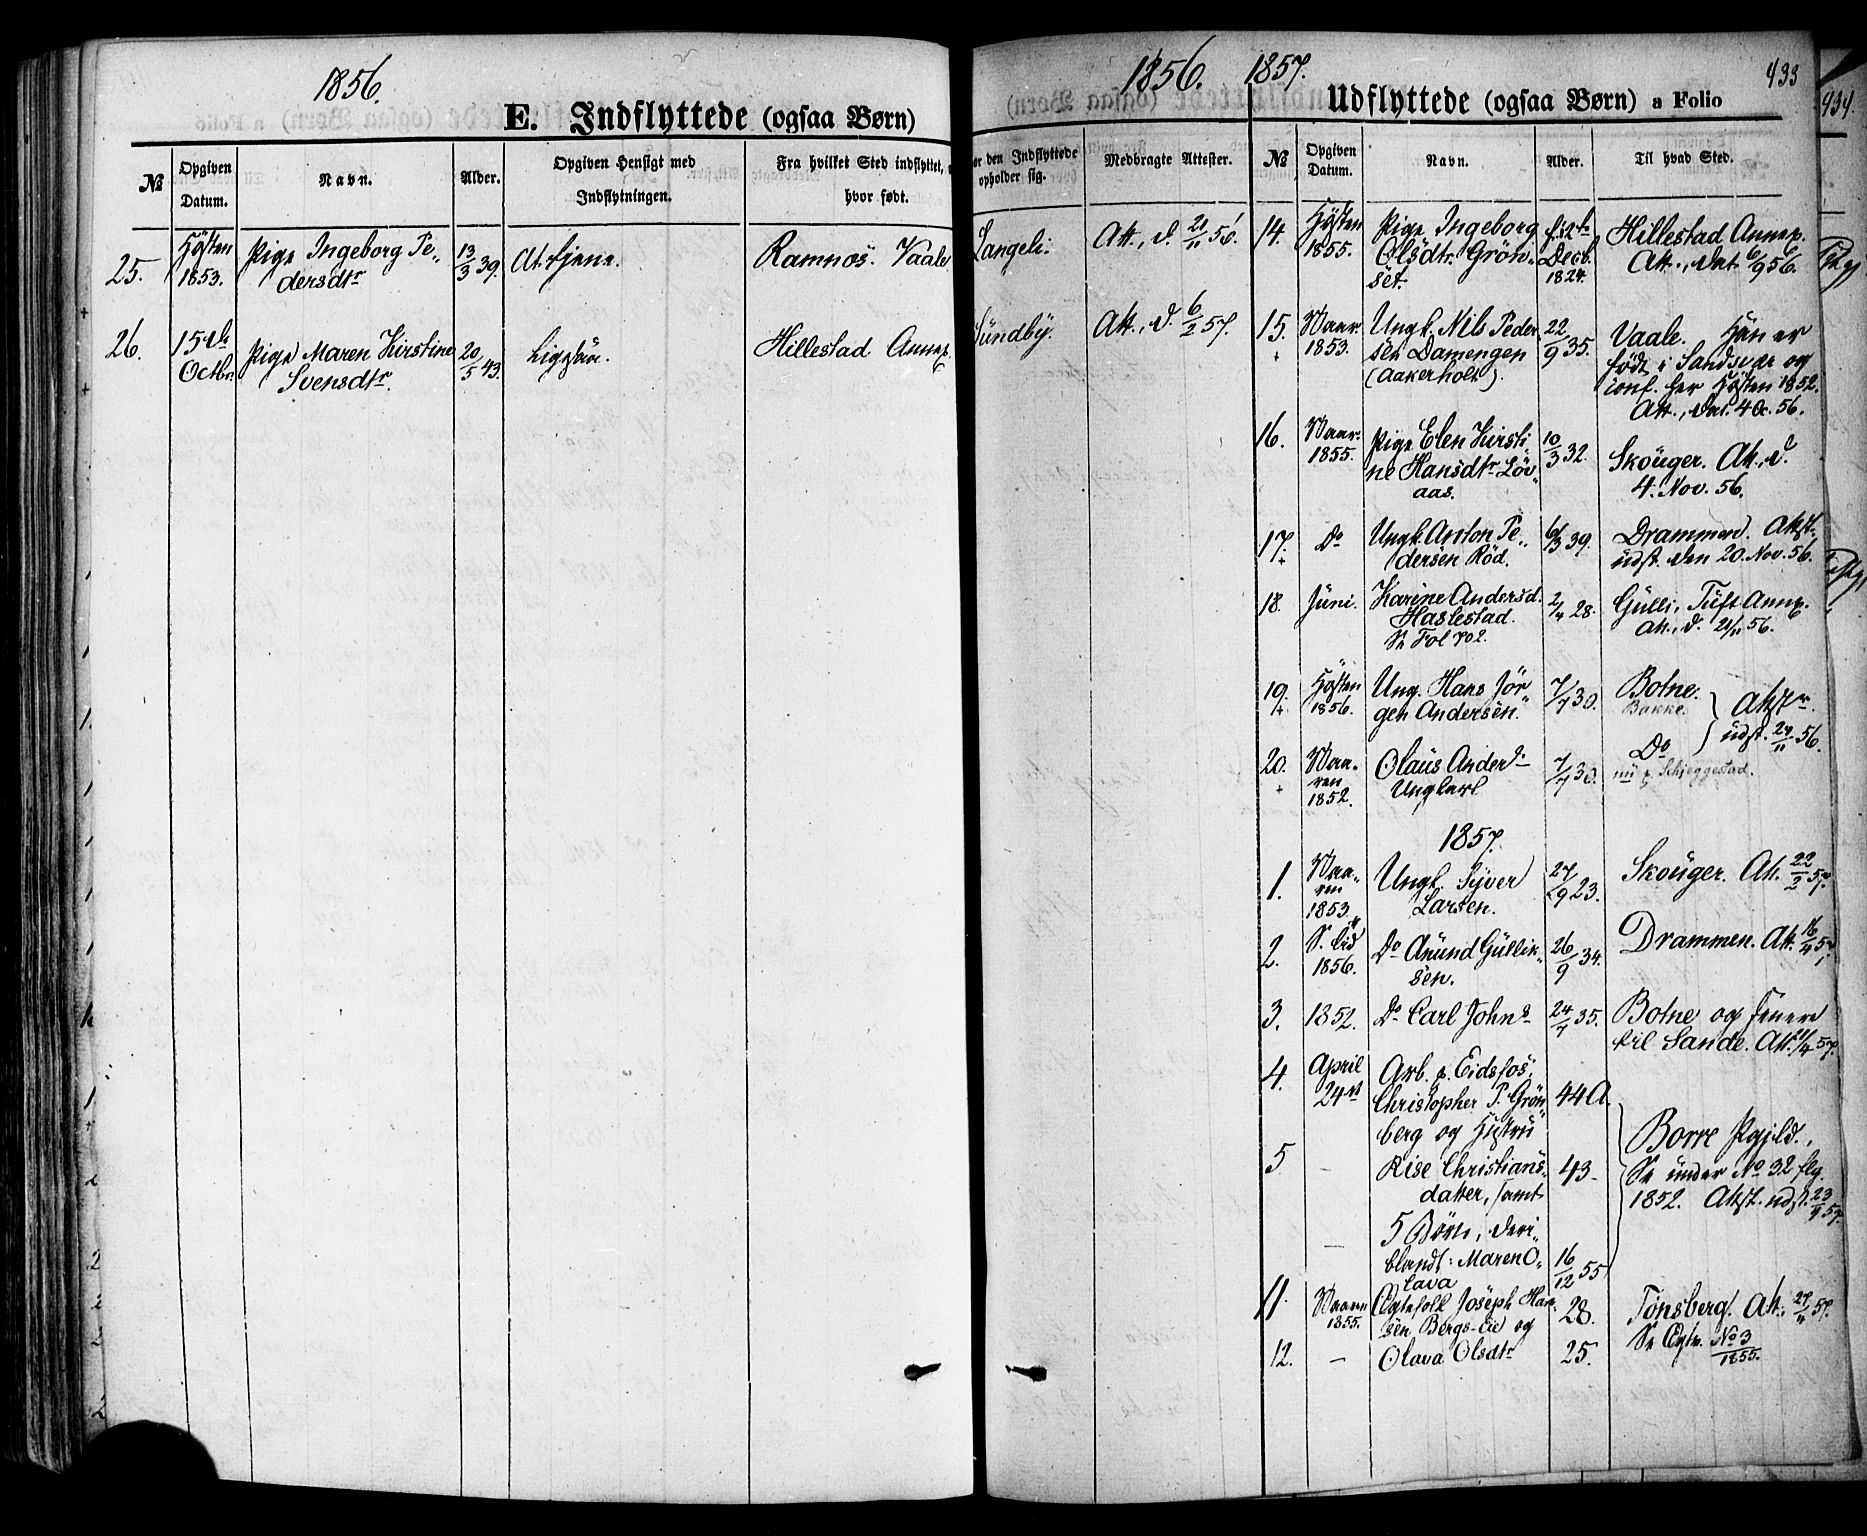 1856.
E. Indflyttede (ogsaa Børn)
№
Opgiven Datum.
Navn.
Alder.
Opgiven Hensigt med Indflytningen.
Fra hvilket Sted indflyttet,
hvor født.
25. Hösten 1853. Pige Ingeborg Pe-
dersdtr 13/3 39. At tjene. Ramnæs. Vaale
26. 15de Octbr. Pige Maren Kirstine
Svensdtr. 20/5 43. Ligesaa. Hillestad Annex.
1856. 1857. 433
Udflyttede (ogsaa Børn) a Folio
or den Indflyttede
opholder sig.
Medbragte Attester.
№
Opgiven Datum.
Navn.
Alder.
Til hvad Sted.
Langeli. Att., d. 21/11 56.
Sundby. Att., d. 6/2 57.
14. Hösten 1855. Pige Ingeborg
Olsdtr. Grön-
set. Decb. 1824. Hillestad Annex.
Att., dat. 6/9 56.
15. Vaar 1853. Ungk. Nils Peder
sen Damengen
(Aakerholt). 22/9 35. Vaale. Han er
födt i Sandsvær og
conf. her Hösten 1852.
Att., dat. 4 Oc. 56.
16. Vaar. 1855. Pige Elen Kirsti
ne Hansdtr Löv-
aas. 10/3 32. Skouger. Att., d.
4. Nov. 56.
17. Do Ungk. Anton Pe-
dersen Röd. 6/3 39. Drammen. Attst.
udst. den 20. Nov. 56.
18. Juni. Karine Andersd.
Haslestad.
Se Fol 702. 2/4 28. Gulli, Tuft Annex.
Att., d. 21/11 56.
19. Hösten 1856. Ung. Hans Jör
gen Andersen. 7/7 30. Botne.
Bakke.
Attst
udst. 24/11 56.
20. Vaa-
ren
1852. Olaus Anders.
Ungkarl 7/7 30. Do
nu p. Schjeggestad.
1857.
1. Vaa-
ren
1853. Ungk. Syver
Larsen. 27/9 23. Skouger. Att. 22/2 57.
2. 1856. Do Anund Gullik-
sen. 26/9 34. Drammen. Att. 16/4 57.
3. 1852. Do Carl Johns 24/7 35. Botne og senere
til Sande. Att. 21/4 57.
4. April
24de Arb. p. Eidsfos,
Christopher P. Grön
berg og Hustru 44 A.
5 – Lise Christians-
datter, samt 43 –
Borre Pgjeld.
Se under No 32 flg.
1852. Attst. udst. 23/4 57.
– 5 Börn, deri-
blandt: Maren O-
lava 16/12 55
11. Vaaren
1855. Ægtefolk Joseph Han-
sen Bergs-Eie og 28. Tonsberg. Att. 27/4 57.
12. – Olava Olsdtr 25. Se Egtv. No 3
1855.
434.